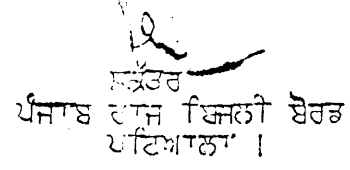 ਸਕੱਤਰ
ਪੰਜਾਬ ਰਾਜ ਬਿਜਲੀ ਬੋਰਡ
ਪਟਿਆਲਾ ।